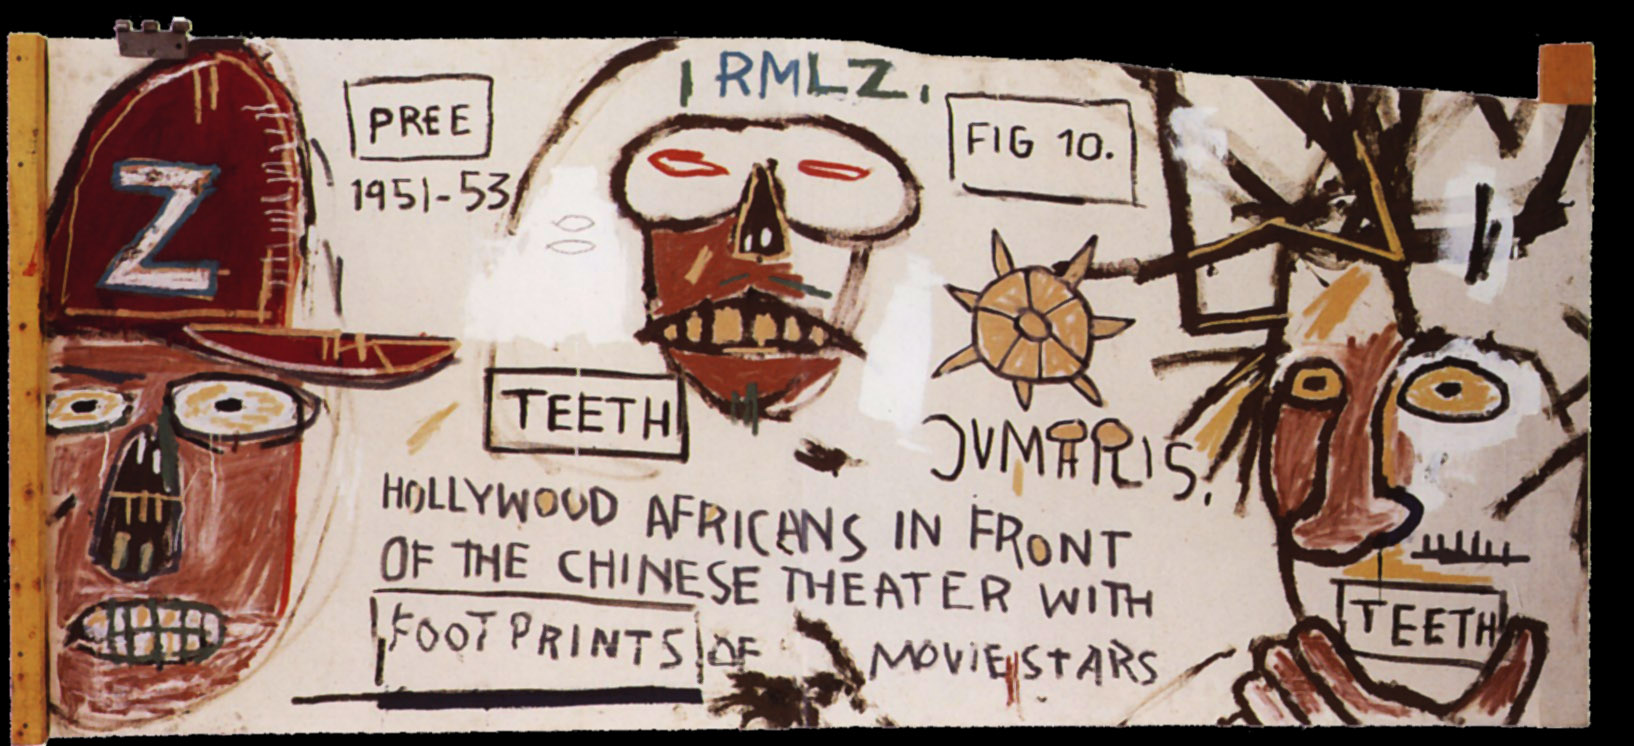 PREE
1951-53
Z
I RMLZ.
FIG 10.
TEETH
JVMPRIS.
HOLLYWOOD AFRICANS IN FRONT
OF THE CHINESE THEATER WITH
FOOTPRINTS OF MOVIE STARS
TEETH